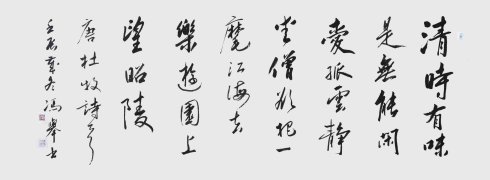 清時有味
是無能閑
愛孤雲靜
愛僧欲把一
麾江海去
樂遊園上
望昭陵
唐杜牧詩
壬辰歲冬馮舉書